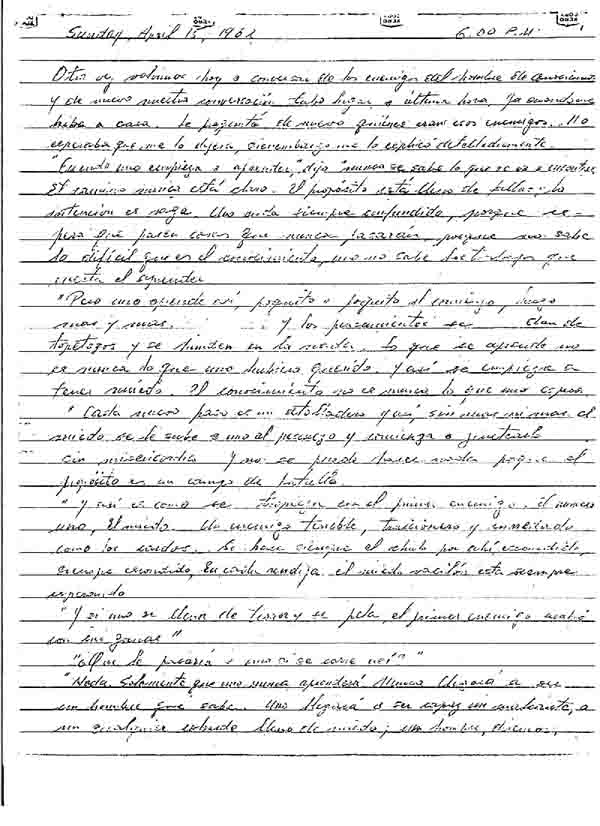 Sunday, April 15, 1962 6.00 P.M.
Otra vez volvimos hoy a conversar de los enemigos del hombre de conocimiento
y de nuevo nuestra conversación tubo lugar a última hora, ya cuando me
hiba a casa. Le pregunté de nuevo quiénes eran esos enemigos. No
esperaba que me lo dijera, sinembargo me lo explicó detalladamente.
"Cuando uno empieza a aprender," dijo "nunca se sabe lo que se va a encontrar.
El camino nunca está claro. El propósito está lleno de fallas; la
intencion es vaga. Uno está siempre confundido, porque es-
pera que pasen cosas que nunca pasarán, porque no sabe
lo difícil que es el conocimiento, uno no sabe los trabajos que
cuesta el aprender
"Pero uno aprende así, poquito a poquito al comienzo, luego
mas y mas. y los pensamientos se dan de
topetazos y se hunden en la nada. Lo que se aprende no
es nunca lo que uno hubiera querido. Y así se empieza a
tener miedo. El conocimiento no es nunca lo que uno espera.
"Cada nuevo paso es un atolladero y así, sin mas ni mas el
miedo se le sube a uno al pescuezo y comienza a
sin misericordia y no se puede hacer nada porque el
propósito es un campo de batalla.
"Y así es como se tropieza con el primer enemigo. El numero
uno, El miedo. Un enemigo terrible, traicionero y enredado
como los cardos. Se hace siempre el por ahí escondido,
siempre escondido, En cada rendija el miedo está siempre
esperando
"Y si uno se llena de terror y se pela, el primer enemigo acabó
con sus ganas"
"¿Que le pasaria a uno si se corre así?"
"Nada. Solamente que uno nunca aprenderá. Nunca llegará a ser
un hombre que sabe. Uno llegará a ser un a
un cualquiera lleno de miedo; un hombre,